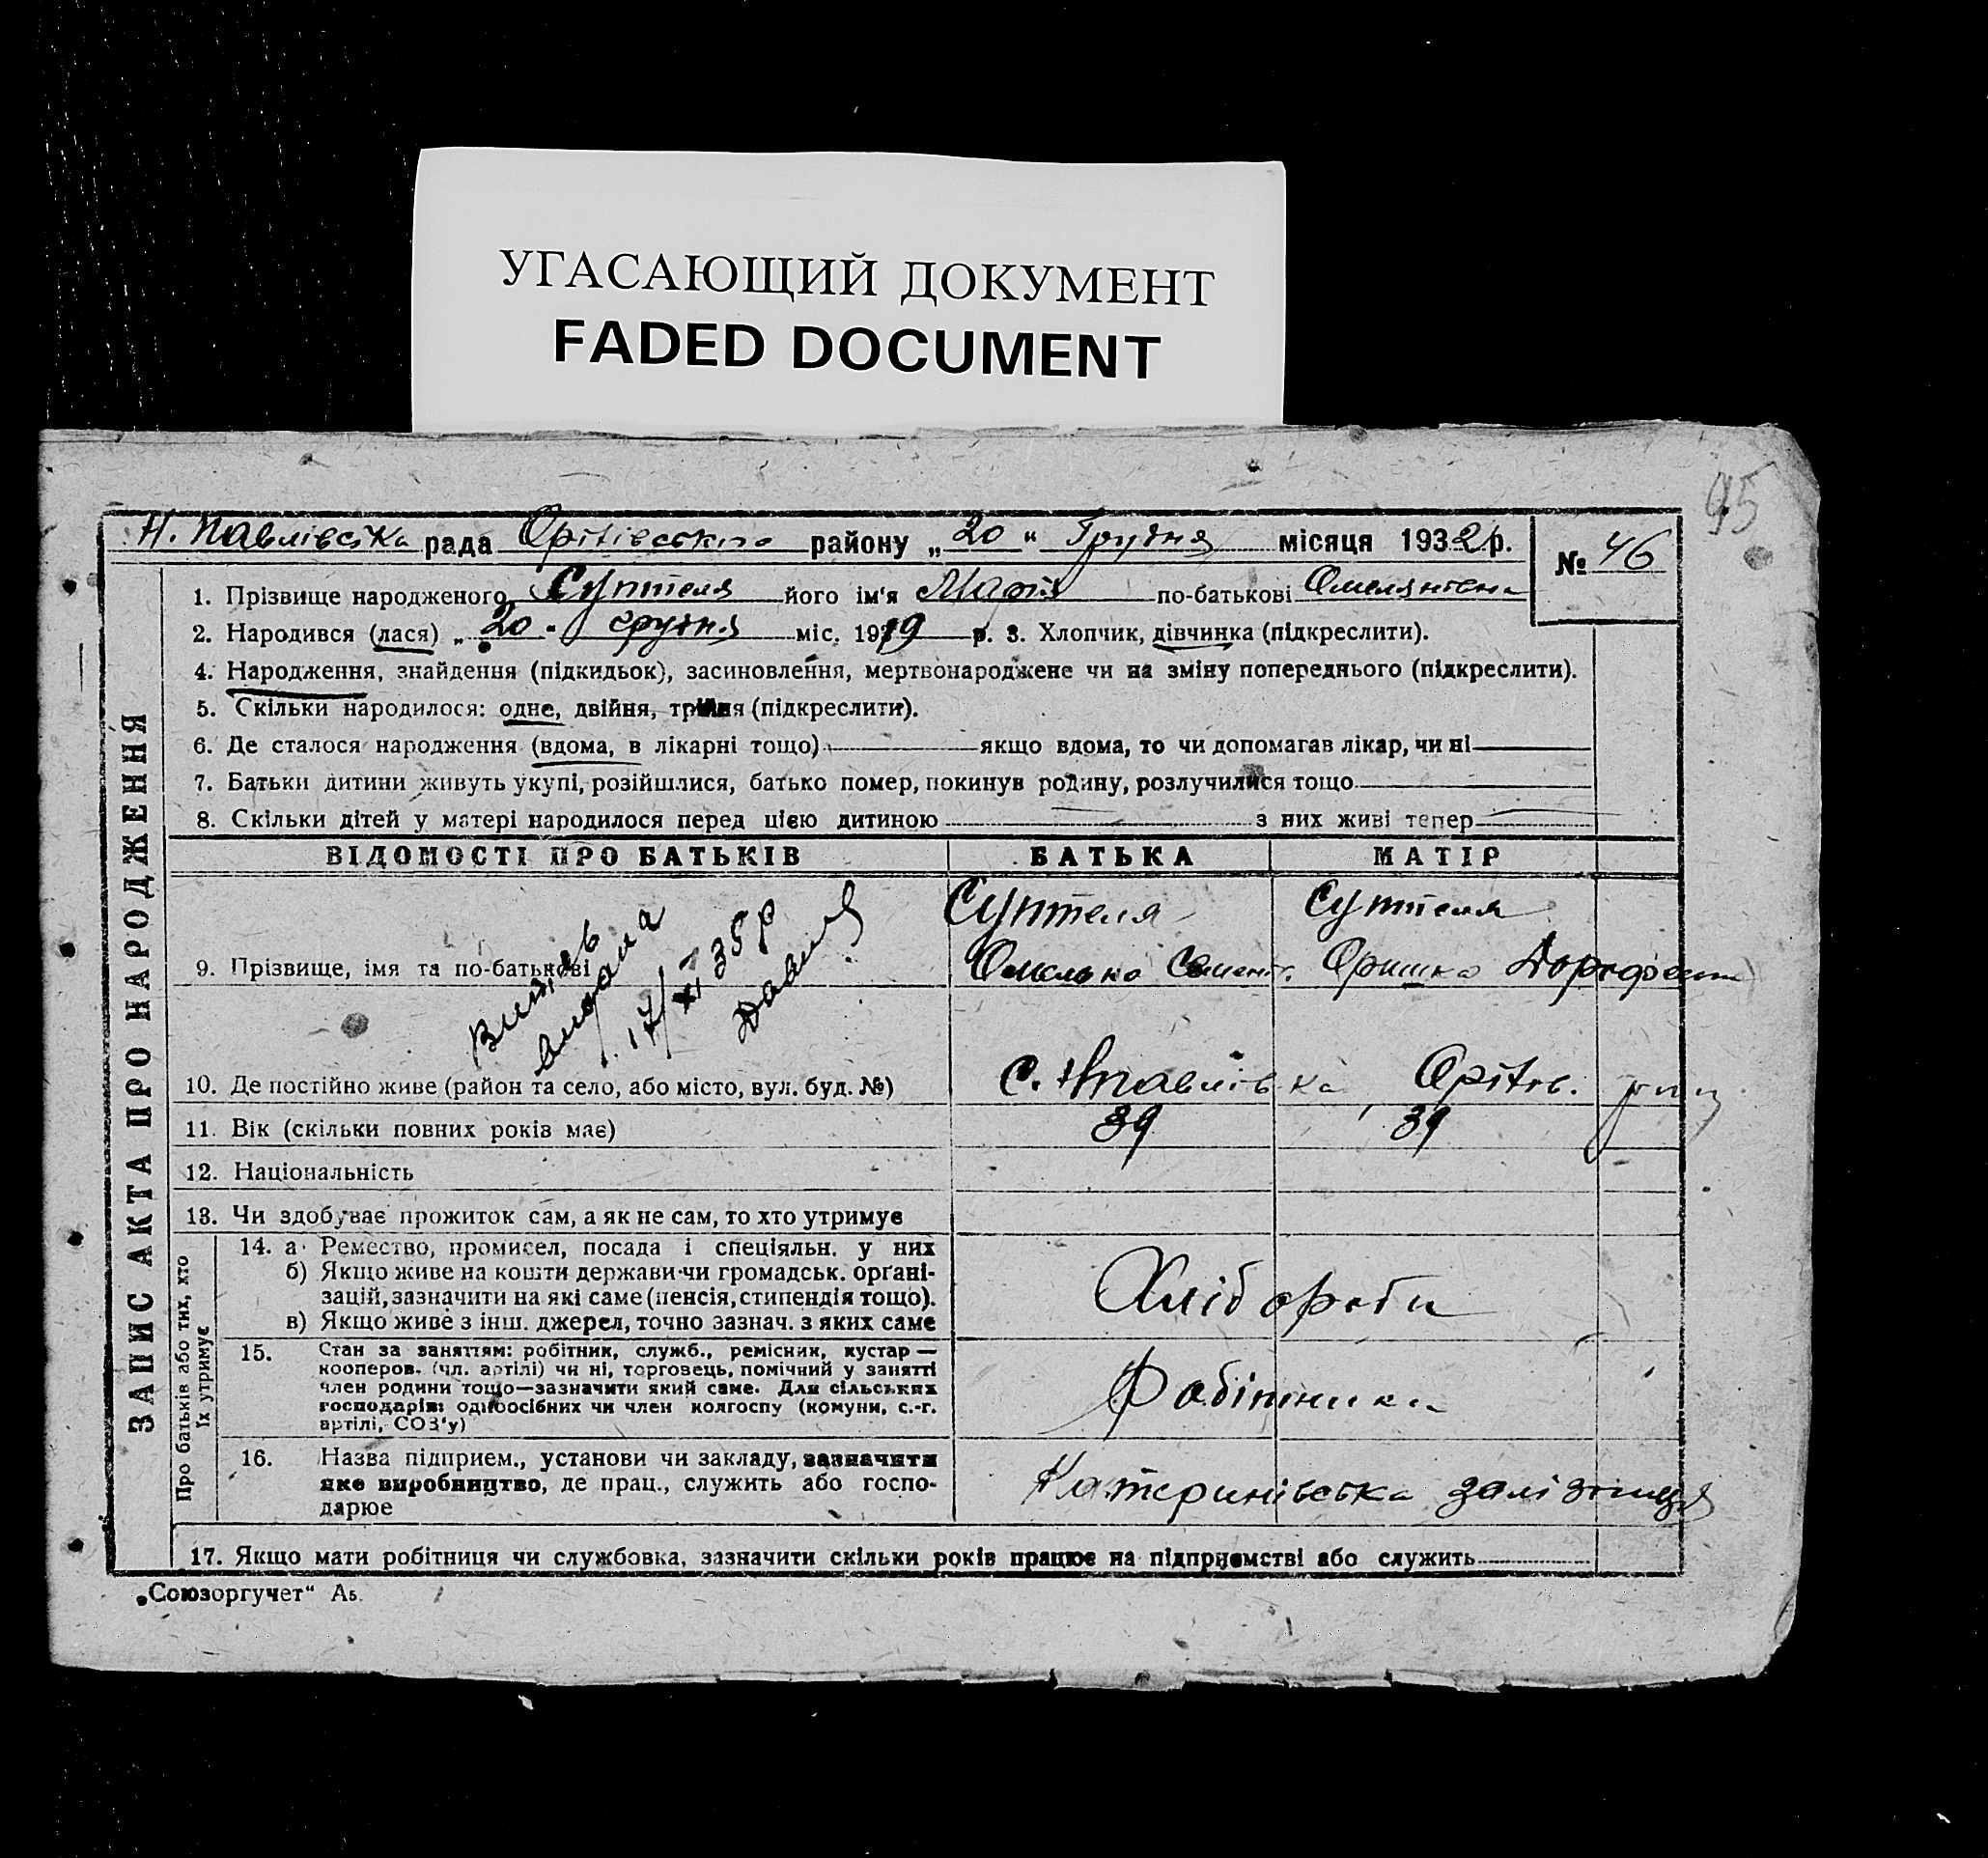 УГАСАЮЩИЙ ДОКУМЕНТ
FADED DOCUMENT
95
Н. Павлівська рада Оріхівського району „20“ Грудня місяця 1932 р.
№ 46
ЗАПИС АКТА ПРО НАРОДЖЕННЯ
1. Прізвище народженого Суптеля його ім'я Марія по-батькові Омелянівна
2. Народився (лася) „20“ грудня міс. 1919 р. 3. Хлопчик, дівчинка (підкреслити).
4. Народження, знайдення (підкидьок), засиновлення, мертвонароджене чи на зміну попереднього (підкреслити).
5. Скільки народилося: одне, двійня, трійня (підкреслити).
6. Де сталося народження (вдома, в лікарні тощо) якщо вдома, то чи допомагав лікар, чи ні
7. Батьки дитини живуть укупі, розійшлися, батько помер, покинув родину, розлучилися тощо
8. Скільки дітей у матері народилося перед цією дитиною з них живі тепер
ВІДОМОСТІ ПРО БАТЬКІВ БАТЬКА МАТІР
Суптеля Суптеля
9. Прізвище, імя та по-батькові Омелько Семен. Оришка
17/XI 35 р
10. Де постійно живе (район та село, або місто, вул. буд. №) С. Нпавлівка Оріхів.
11. Вік (скільки повних років має) 39 39
12. Національність
13. Чи здобуває прожиток сам, а як не сам, то хто утримує
Про батьків або тих, хто
їх утримує
14. а Ремество, промисел, посада і спеціяльн. у них
б) Якщо живе на кошти держави чи громадськ. орґані-
зацій, зазначити на які саме (пенсія, стипендія тощо).
в) Якщо живе з інш. джерел, точно зазнач. з яких саме
Хлібороби
15. Стан за заняттям: робітник, служб., ремісник, кустар —
кооперов. (чл. артілі) чи ні, торговець, помічний у занятті
член родини тощо—зазначити який саме. Для сільських
господарів: одноосібних чи член колгоспу (комуни, с.-г.
артілі, СОЗ'у)
Робітники
16. Назва підприєм., установи чи закладу, зазначити
яке виробництво, де прац., служить або госпо-
дарює
Катеринівська залізниця
17. Якщо мати робітниця чи службовка, зазначити скільки років працює на підприємстві або служить
„Союзоргучет“ А5.